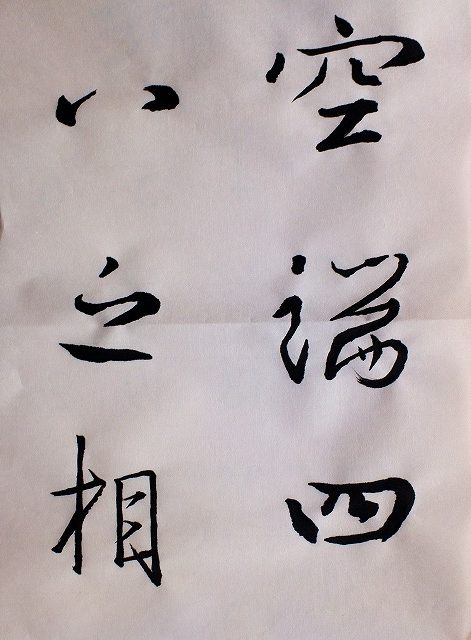 空端四
八之相